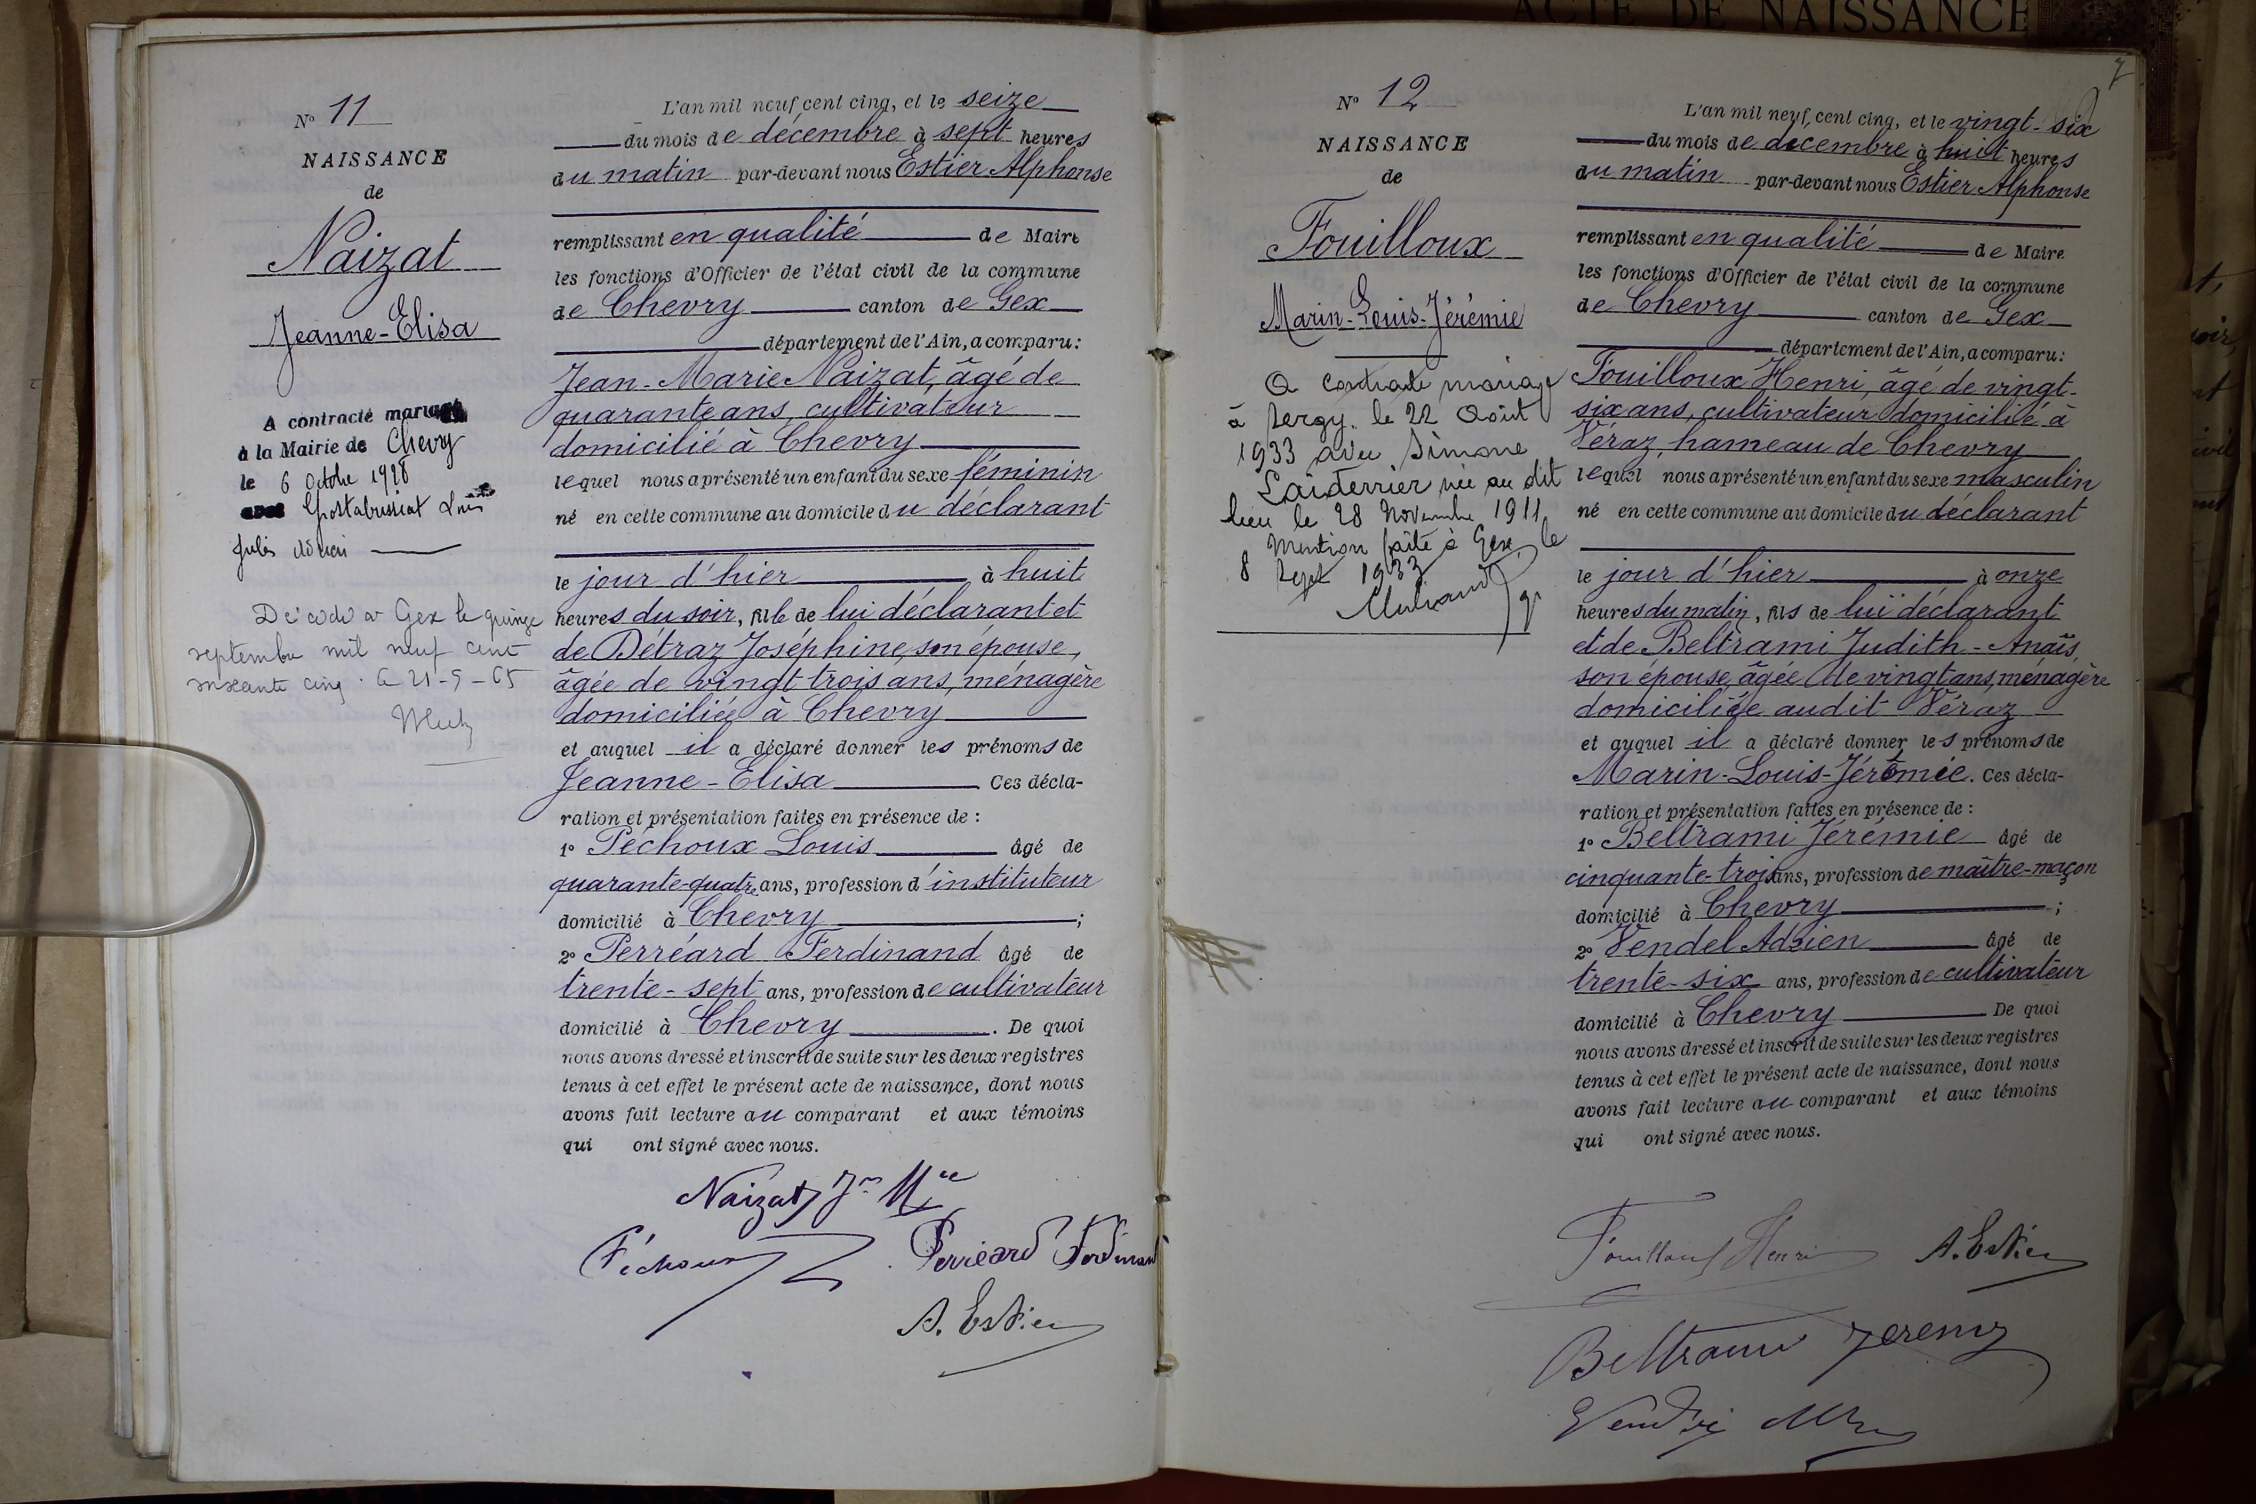 ACTE DE NAISSANCE
N° 11
NAISSANCE
de
Naizat
Jeanne-Elisa
A contracté mariage
à la Mairie de Chevry
le 6 Octobre 1928
Louis
Jules
Décédée à Gex le quinze
septembre mil neuf cent
soixante cinq. Le 21-9-65
L'an mil neuf cent cinq, et le seize
du mois de décembre à sept heures
du matin par-devant nous Estier Alphonse
remplissant en qualité de Maire
les fonctions d'Officier de l'état civil de la commune
de Chevry canton de Gex
département de l'Ain, a comparu:
Jean-Marie Naizat, âgé de
quarante ans, cultivateur
domicilié à Chevry
lequel nous a présenté un enfant du sexe féminin
né en cette commune au domicile du déclarant
le jour d'hier à huit
heures du soir, fille de lui déclarant et
de Détraz Joséphine, son épouse,
âgée de vingt trois ans, ménagère
domiciliée à Chevry
et auquel il a déclaré donner les prénoms de
Jeanne-Elisa Ces décla-
ration et présentation faites en présence de :
1° Péchoux Louis âgé de
quarante-quatre ans, profession d'instituteur
domicilié à Chevry ;
2° Perréard Ferdinand âgé de
trente-sept ans, profession de cultivateur
domicilié à Chevry . De quoi
nous avons dressé et inscrit de suite sur les deux registres
tenus à cet effet le présent acte de naissance, dont nous
avons fait lecture au comparant et aux témoins
qui ont signé avec nous.
Naizat Jn Mie
Péchoux Perréard Ferdinand
A. Estier
7
N° 12
NAISSANCE
de
Fouilloux
Marin-Louis-Jérémie
A contracté mariage
à Sergy, le 22 Août
1933 avec Simone
Laiderrier née au dit
lieu le 28 Novembre 1911
Mention faite à Gex, le
8 Sept 1933
L'an mil neuf cent cinq, et le vingt-six
du mois de décembre à huit heures
du matin par-devant nous Estier Alphonse
remplissant en qualité de Maire
les fonctions d'Officier de l'état civil de la commune
de Chevry canton de Gex
département de l'Ain, a comparu:
Fouilloux Henri, âgé de vingt-
six ans, cultivateur domicilié à
Véraz, hameau de Chevry
lequel nous a présenté un enfant du sexe masculin
né en cette commune au domicile du déclarant
le jour d'hier à onze
heures du matin, fils de lui déclarant
et de Beltrami Judith-Anaïs,
son épouse, âgée de vingt ans, ménagère
domiciliée audit Véraz
et auquel il a déclaré donner les prénoms de
Marin-Louis-Jérémie. Ces décla-
ration et présentation faites en présence de :
1° Beltrami Jérémie âgé de
cinquante-trois ans, profession de maître-maçon
domicilié à Chevry ;
2° Vendel Adrien âgé de
trente-six ans, profession de cultivateur
domicilié à Chevry De quoi
nous avons dressé et inscrit de suite sur les deux registres
tenus à cet effet le présent acte de naissance, dont nous
avons fait lecture au comparant et aux témoins
qui ont signé avec nous.
Fouilloux Henri A. Estier
Beltrami Jeremy